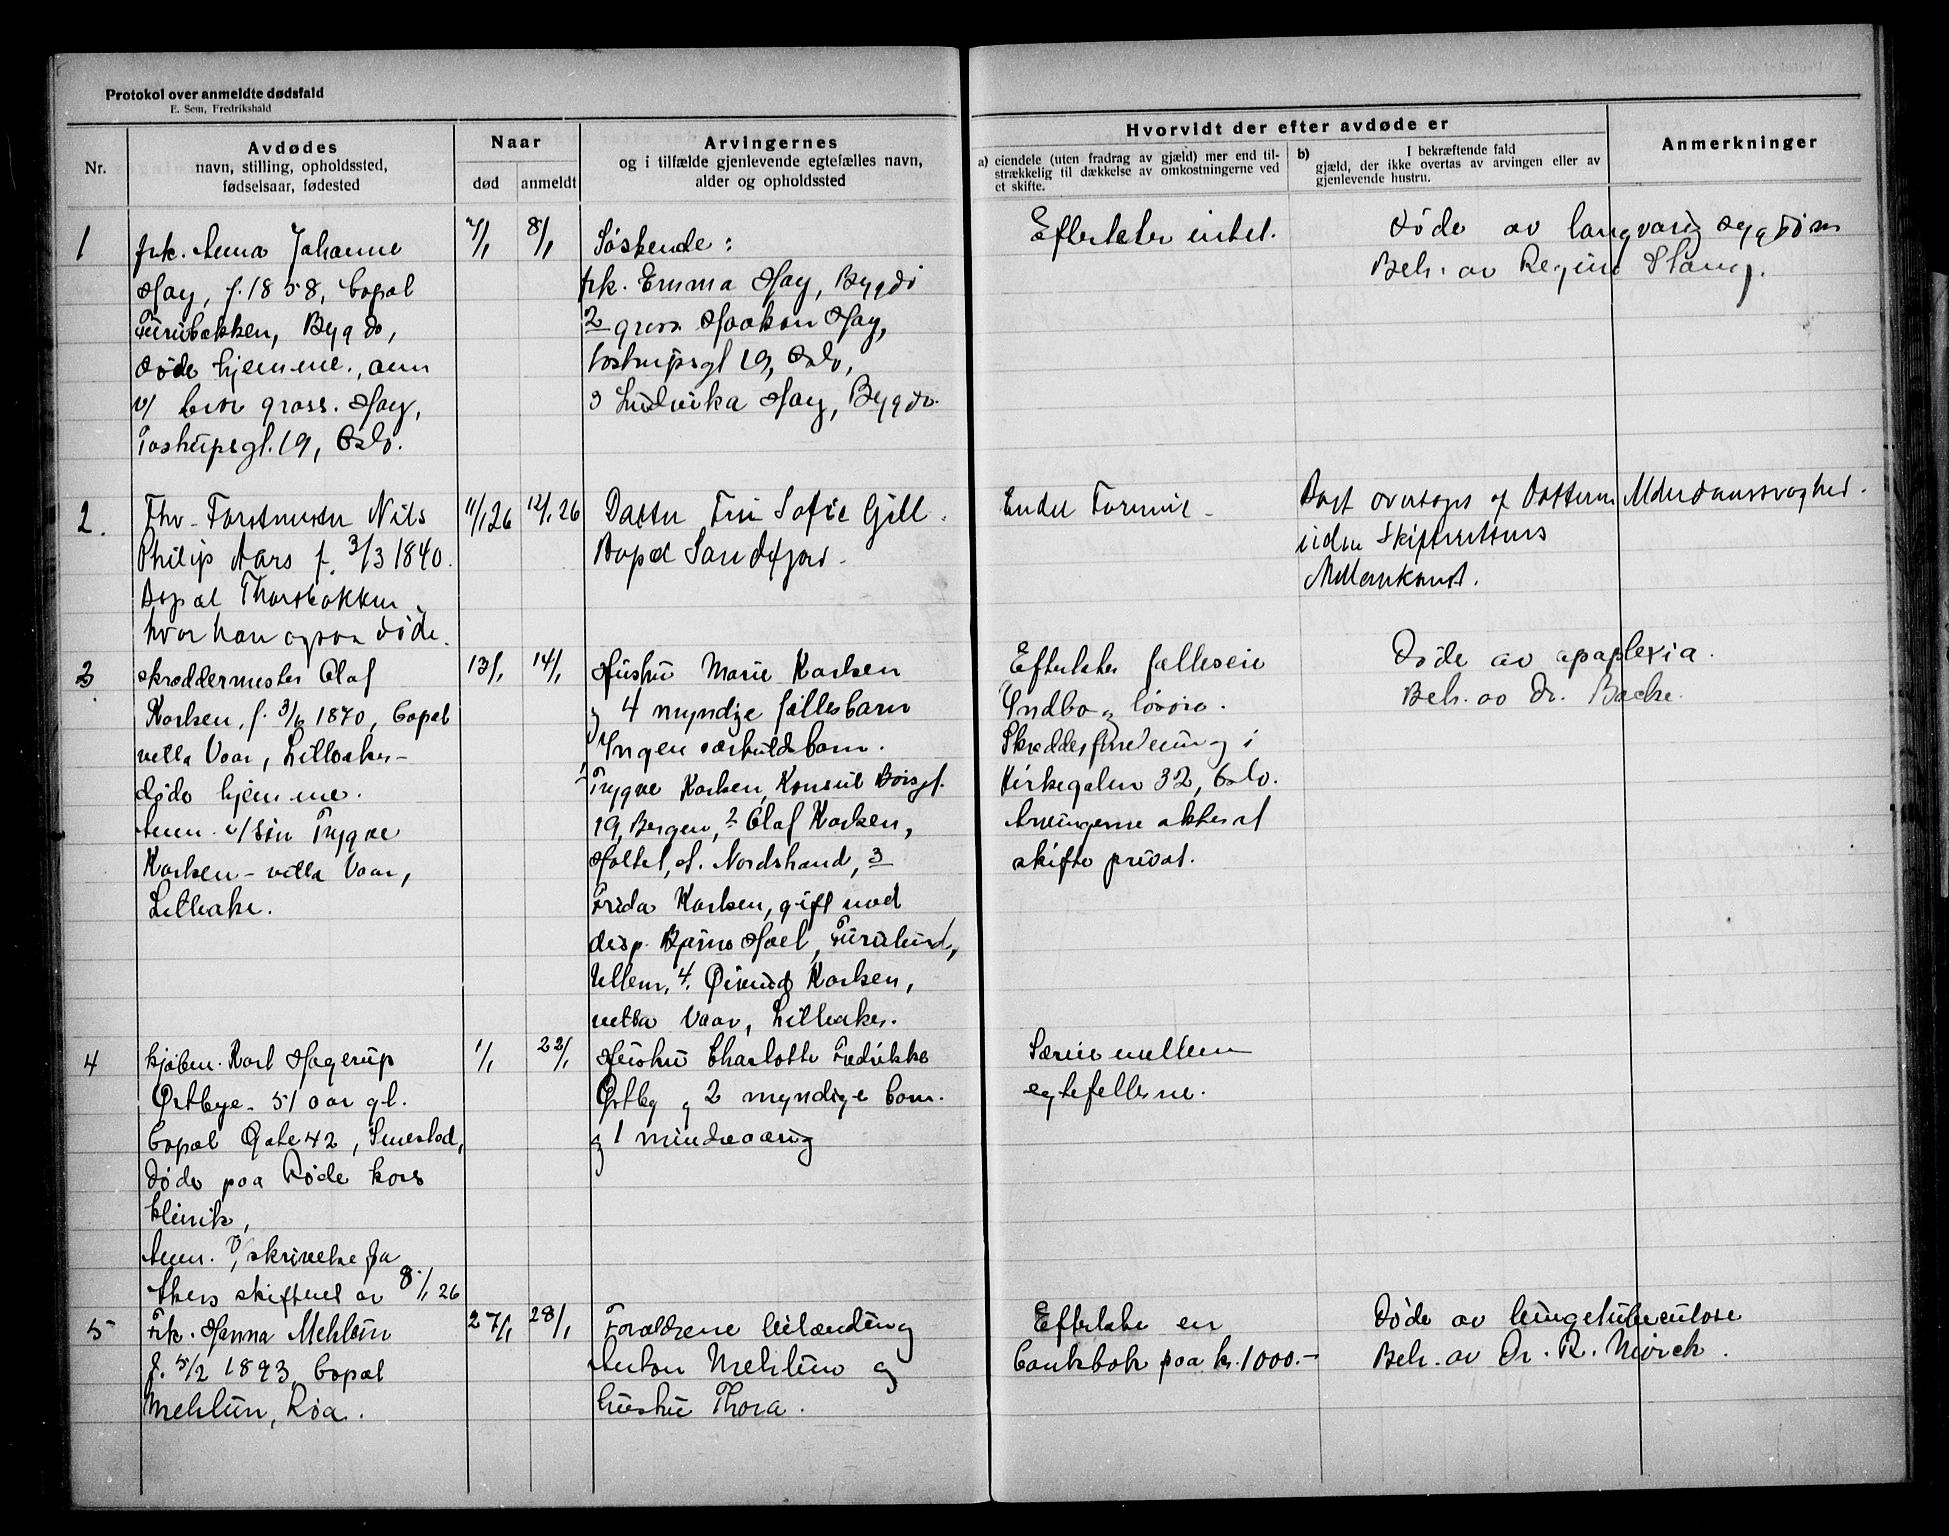 Protokol over anmeldte dødsfald
E. Sem, Fredrikshald
Nr.
Avdødes
navn, stilling, opholdssted,
fødselsaar, fødested
Naar
død
anmeldt
Arvingernes
og i tilfælde gjenlevende egtefælles navn,
alder og opholdssted
Hvorvidt der efter avdøde er
a) eiendele (uten fradrag av gjæld) mer end til-
strækkelig til dækkelse av omkostningerne ved
et skifte.
b) I bekræftende fald
gjæld, der ikke overtas av arvingen eller av
gjenlevende hustru.
Anmerkninger
1
frk. Anna Johanne
Hay, f. 1858, bopæl
Furubakken, Bygdø,
døde hjemme., anm
v/ bror gross. Hay,
Tostrupsgt. 19, Oslo.
7/1
8/1
Søskende:
frk. Emma Hay, Bygdø
2 gross Haakon Hay,
Tostrupsgt 19, Oslo,
3 Ludvika Hay, Bygdø.
Efterlater intet.
Døde av langvarig sygdom
Beh. av Regine Stang.
2.
Fhv. Forstmester Nils
Philip Aars f. 3/3 1840.
Bopæl Thorsbakken
hvor han ogsaa døde.
11/1 26
12/1 26
Datter Fru Sofie Gill.
Bopæl Sandefjord.
Endel Formue
Boet overtages af Datteren Alderdomssvaghed.
uden Skifterettens
Mellemkomst.
3
skræddermester Olaf
Karlsen, f. 3/6 1870, bopæl
villa Vaar, Lilleaker-
døde hjemme.
Anm. v/ søn Trygve
Karlsen - villa Vaar,
Lilleaker.
13/1
14/1
Hustru Marie Karlsen
og 4 myndige fællesbarn
Ingen særkuldsbarn.
1 Trygve Karlsen, Konsul Børsgt.
19, Bergen, 2 Olaf Karlsen,
Holtet, st. Nordstrand, 3
Frida Karlsen, gift med
disp. Bjarne Hoel, Furulund,
Ullern, 4. Øivind Karlsen,
villa Vaar, Lilleaker.
Efterlater fælleseie
Indbo og løsøre.
Skrædderforretning i
Kirkegaten 32, Oslo.
Arvingerne akter at
skifte privat.
Døde av apoplexia.
Beh. av Dr. Backe.
4
kjøbm. Karl Hagerup
Ørtbye. 51 aar gl.
bopæl Gate 42, Smestad,
døde paa Røde kors
klinik,
Anm. v/ skrivelse fra
Akers skifteret av 8/1 26
1/1
22/1
Hustru Charlotte Fredrikke
Ørtby og 2 myndige barn.
og 1 mindreaarig
Særeie mellem
egtefellerne.
5
Frk. Hanna Mehlum
f. 5/2 1893 bopæl
Mehlum, Røa.
27/1
28/1
Forældrene
Anton Mehlum og
hustru Thora.
Efterlater en
bankbok paa kr. 1000.-
Døde av lungetuberculose
Beh. av Dr. R.